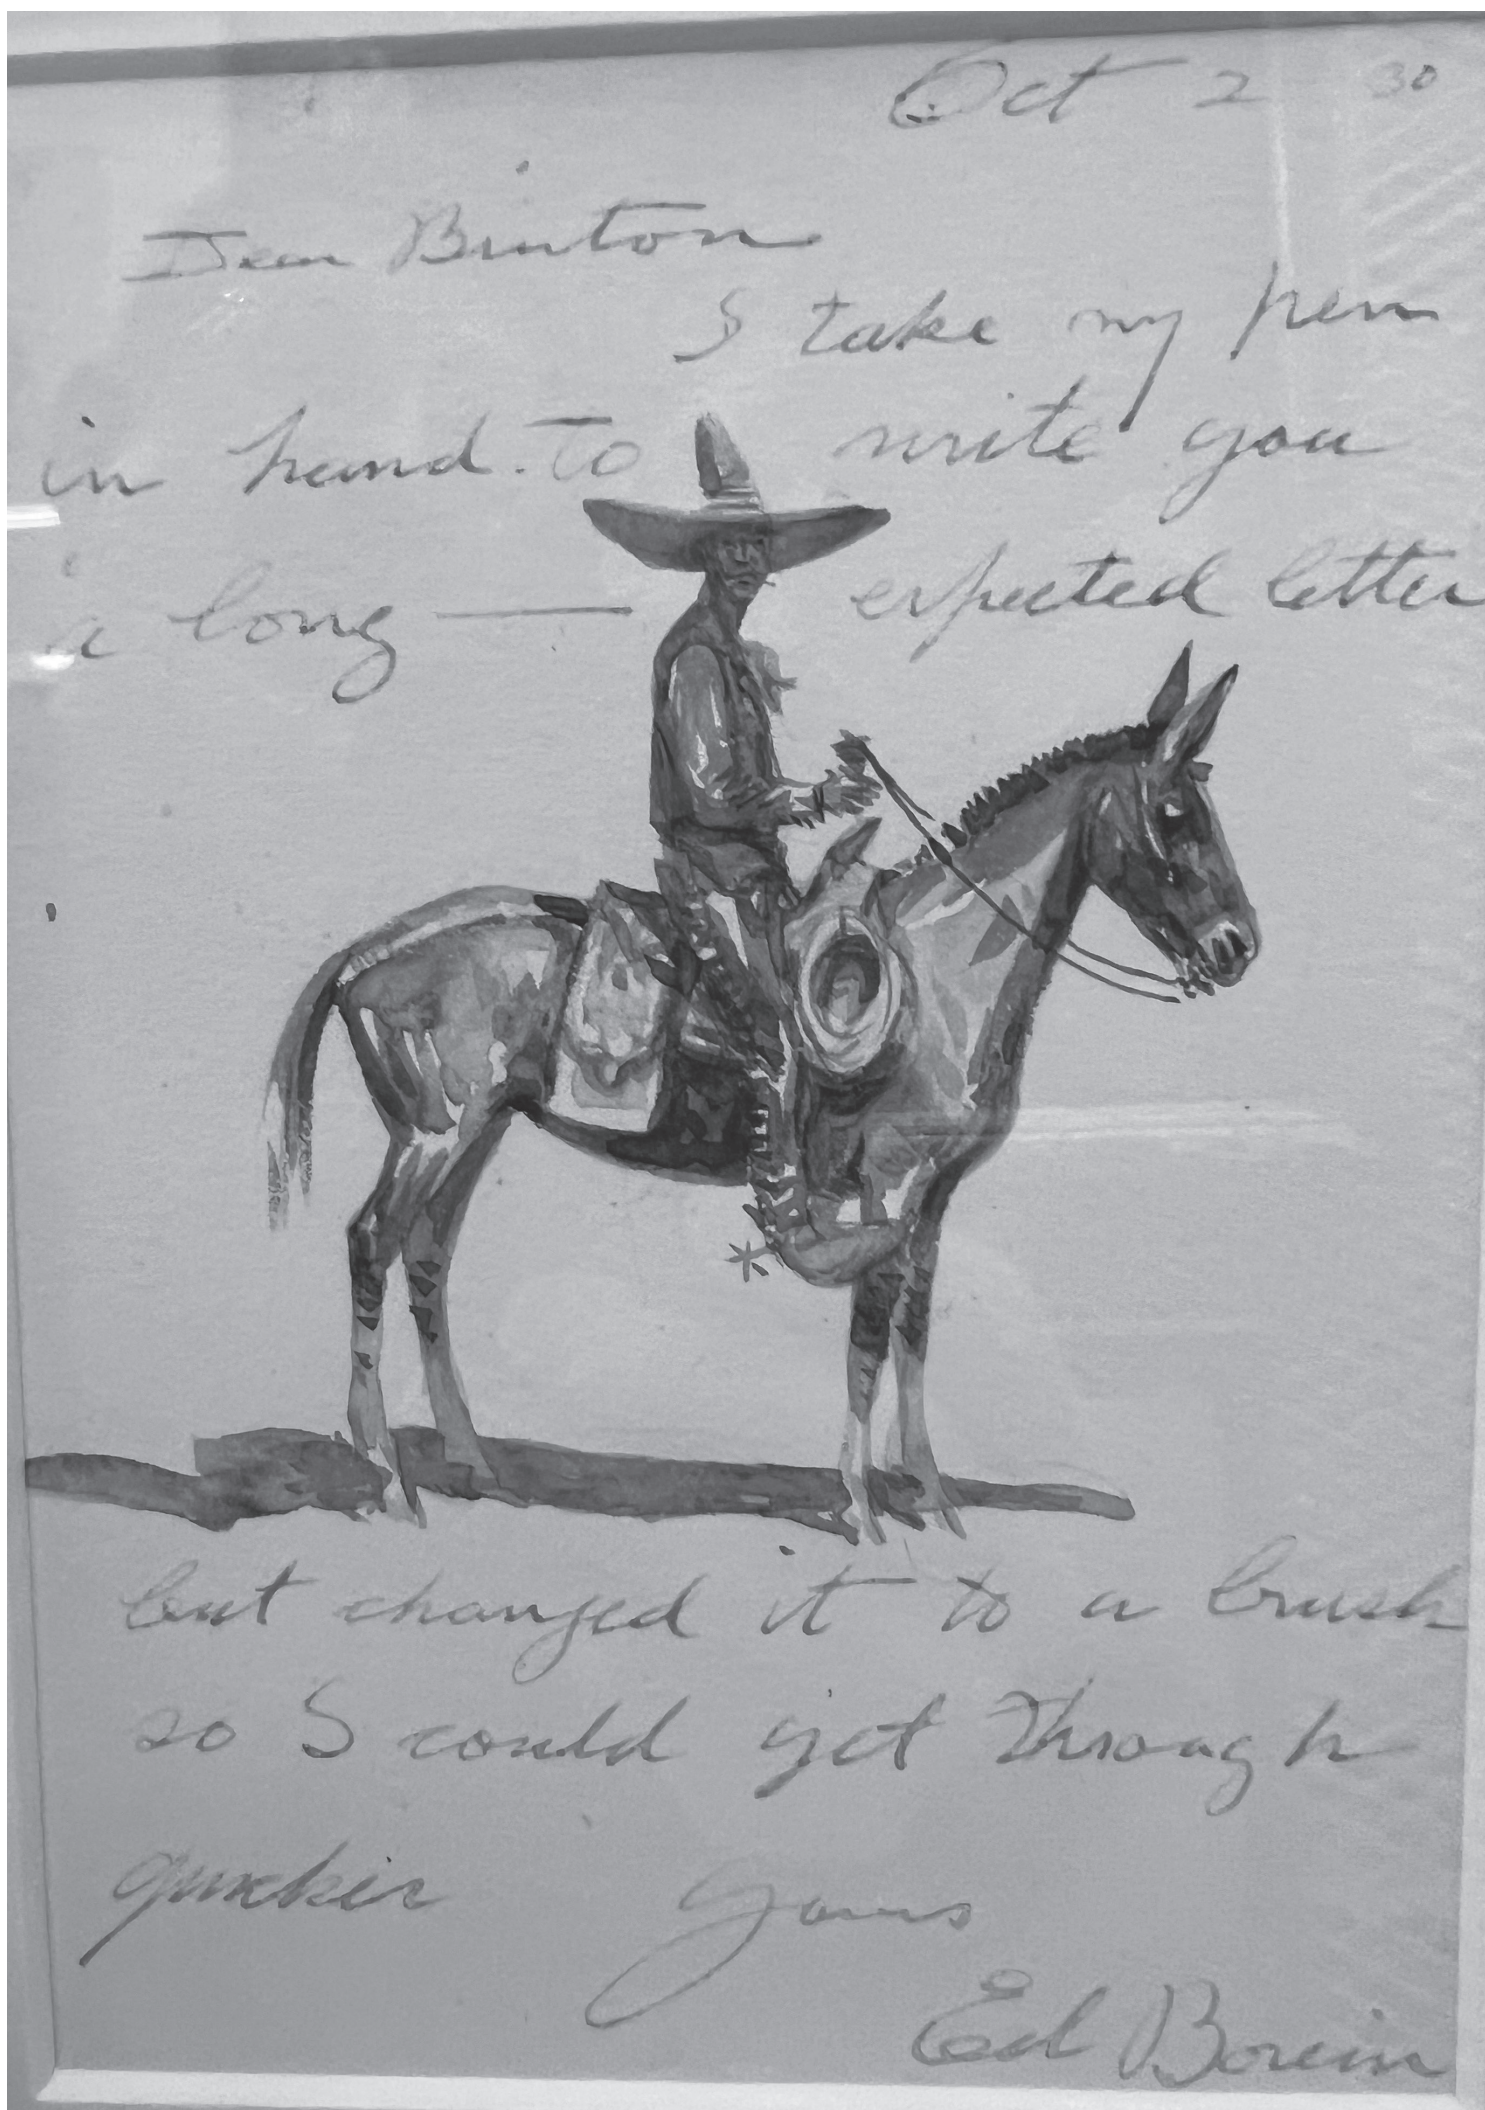 Oct 2 30
Dear Binton
I take my pen
in hand. To write you
a long — expected letter
but changed it to a brush
so I could get through
quicker Yours
Ed Borein